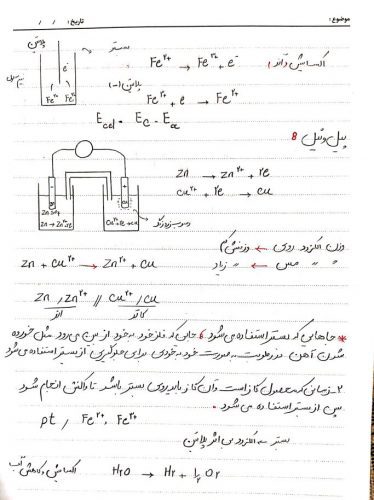 موضوع: تاریخ: / /
اکسایش (آند) Fe²⁺ → Fe³⁺ + e⁻
بستر
پلاتین
e
Fe²⁺ Fe³⁺
پلاتین (-)
Fe³⁺ + e → Fe²⁺
Ecel = Ec - Ea
پیل دانیل 8
Zn → Zn²⁺ + 2e
Cu²⁺ + 2e → Cu
- +
Zn SO4
Zn → Zn²⁺+2e
Cu²⁺+2e → Cu
وزن الکترود روی ← وزنش کم
" " مس ← " زیاد
Zn + Cu²⁺ → Zn²⁺ + Cu
Zn / Zn²⁺ // Cu²⁺ / Cu
آند کاتد
* جاهایی که بستر استفاده می شود 6 جایی که فلز خود به خود از بین می رود مثل خورده
شدن آهن در رطوبت به صورت خود به خودی برای جلوگیری از بستر استفاده می شود
2- زمانی که محصول گاز است و آن گاز باید روی بستر باشد تا واکنش انجام شود
پس از بستر استفاده می شود.
pt / Fe²⁺, Fe³⁺
بستر ← الکترود بی اثر پلاتین
اکسایش و کاهش آب H2O → H2 + ½ O2